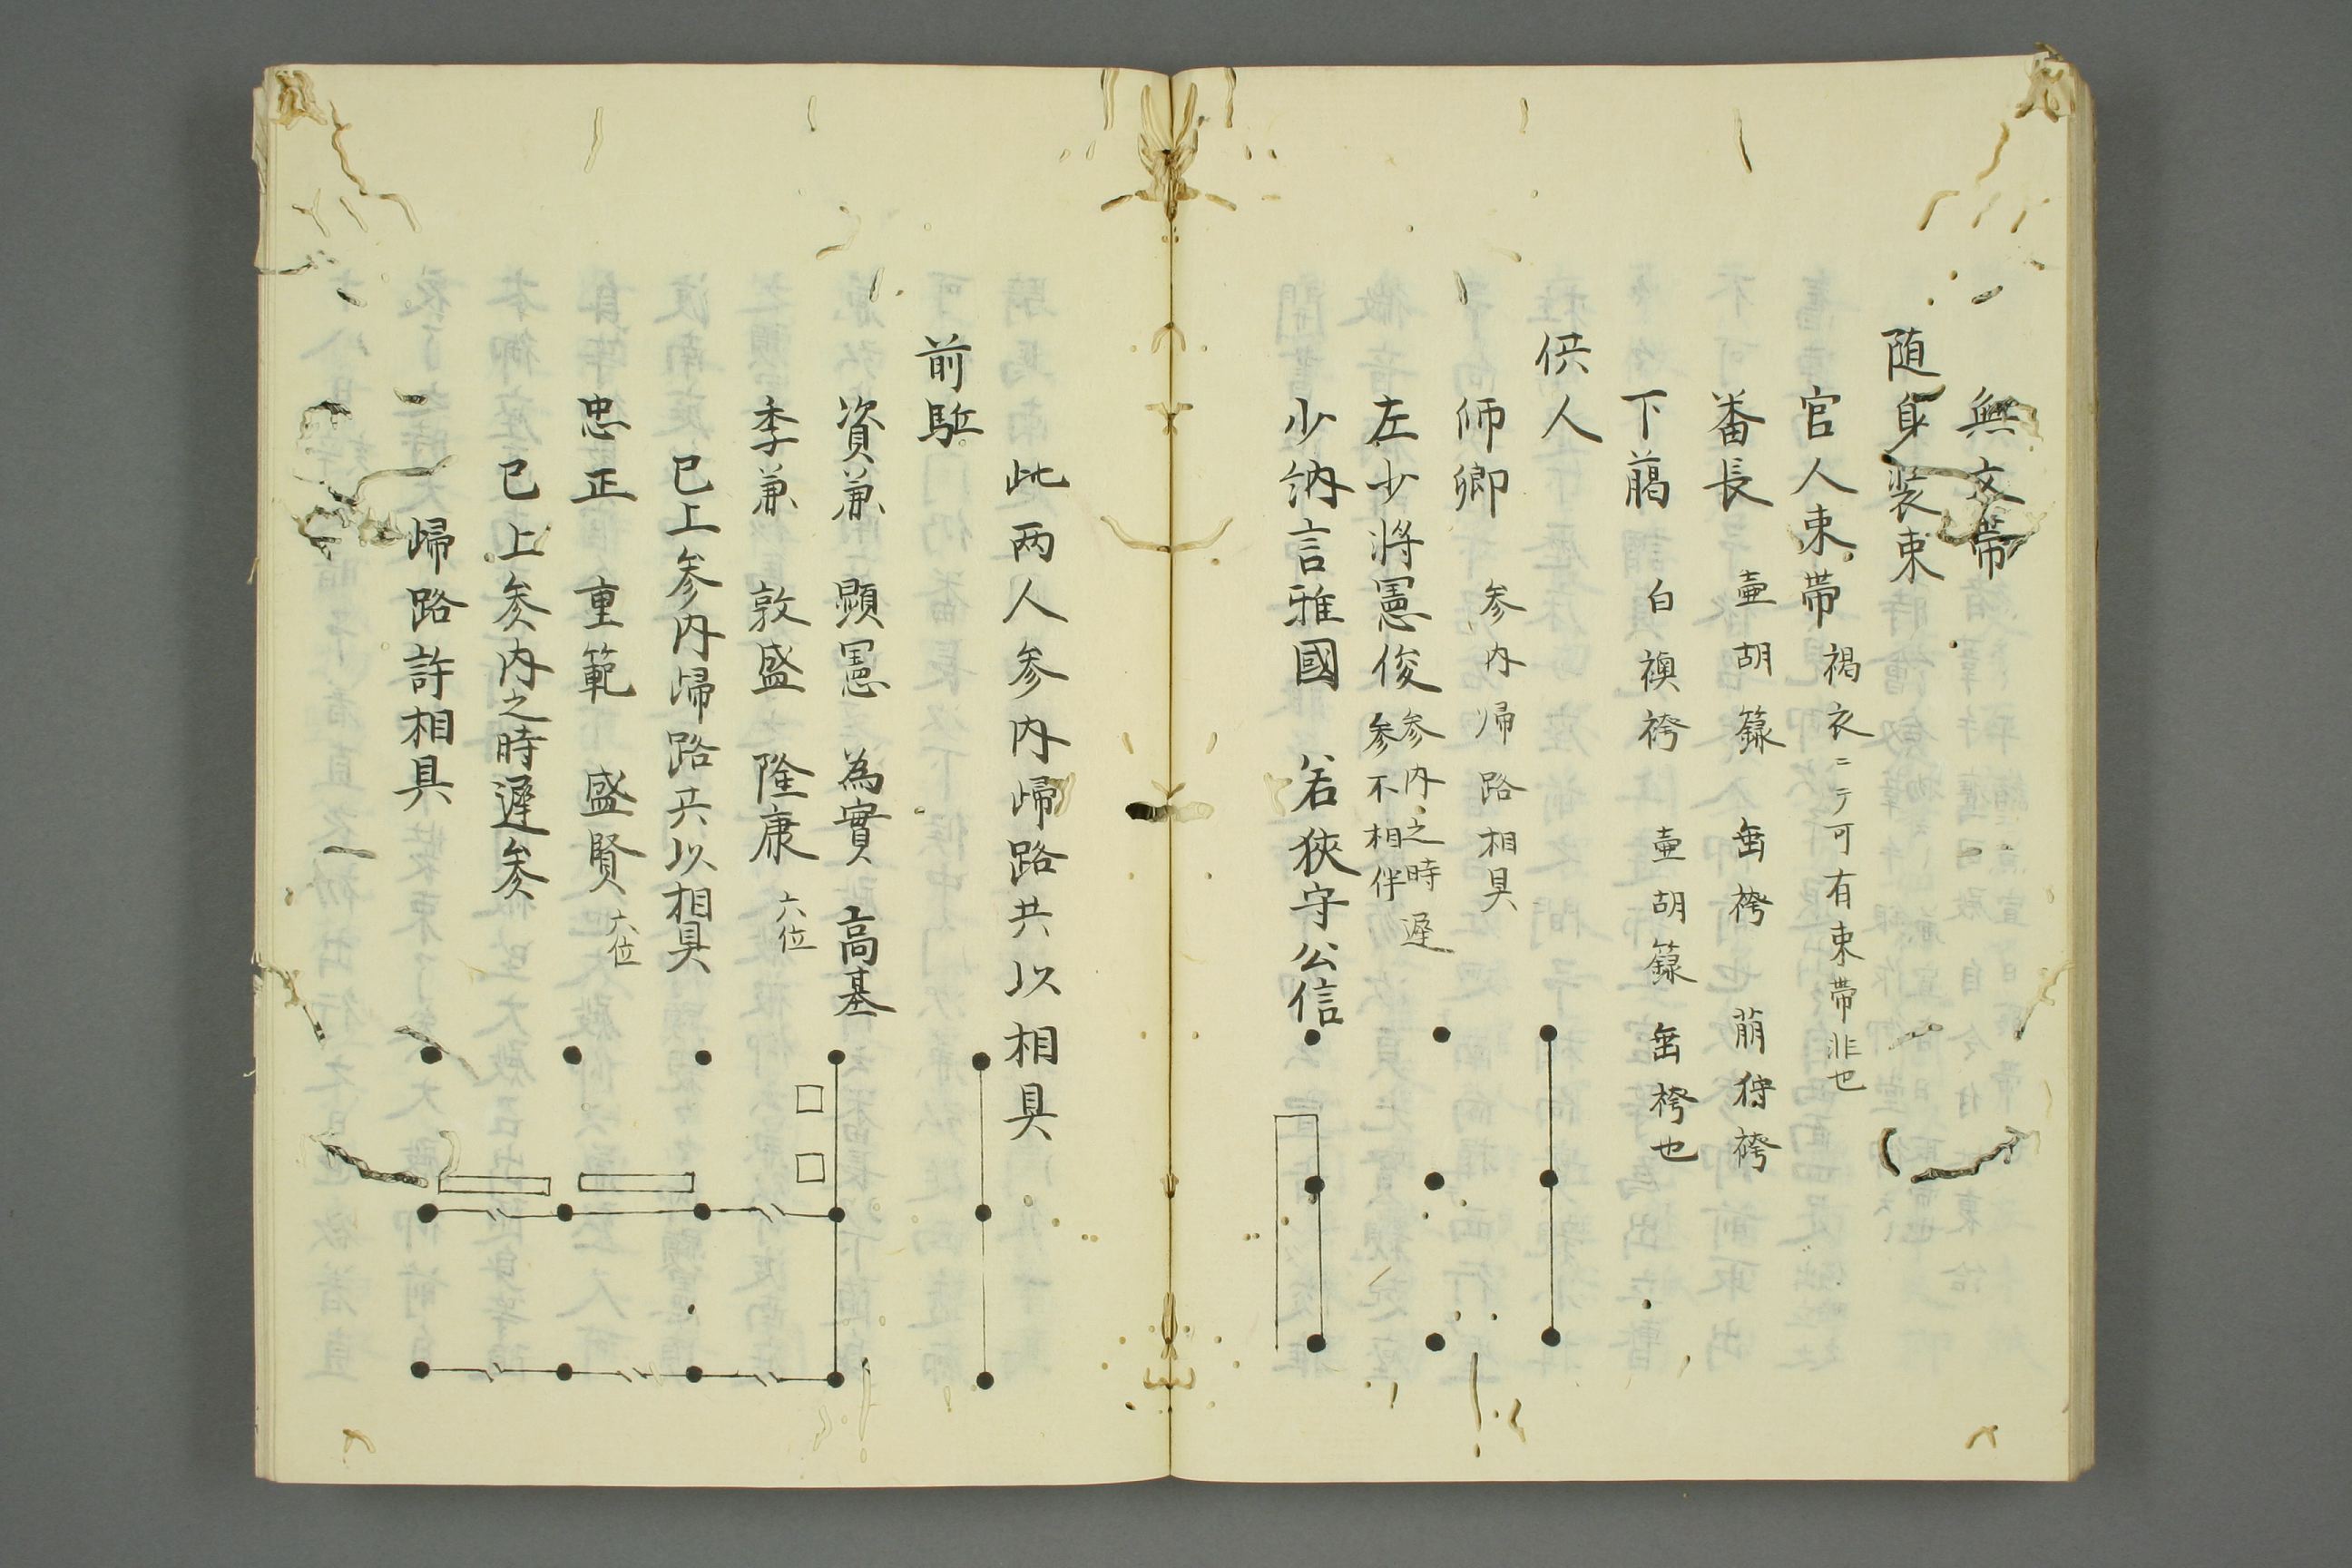 無文帯
随身装束
官人束帯 褐衣ニテ可有束帯非也
番長 壷胡籙 垂袴 萠狩袴
下﨟 白襖袴 壷胡籙 垂袴也
供人
師卿 参内帰路相具
左少將憲俊 参内之時遅
参不相伴
少納言雅國 若狹守公信
此两人参内帰路共以相具
前駈
資兼 顕憲 為實 高基
季兼 敦盛 隆康 六位
已上参内帰路共以相具
忠正 重範 盛賢 六位
已上参内之時遅参
歸路許相具